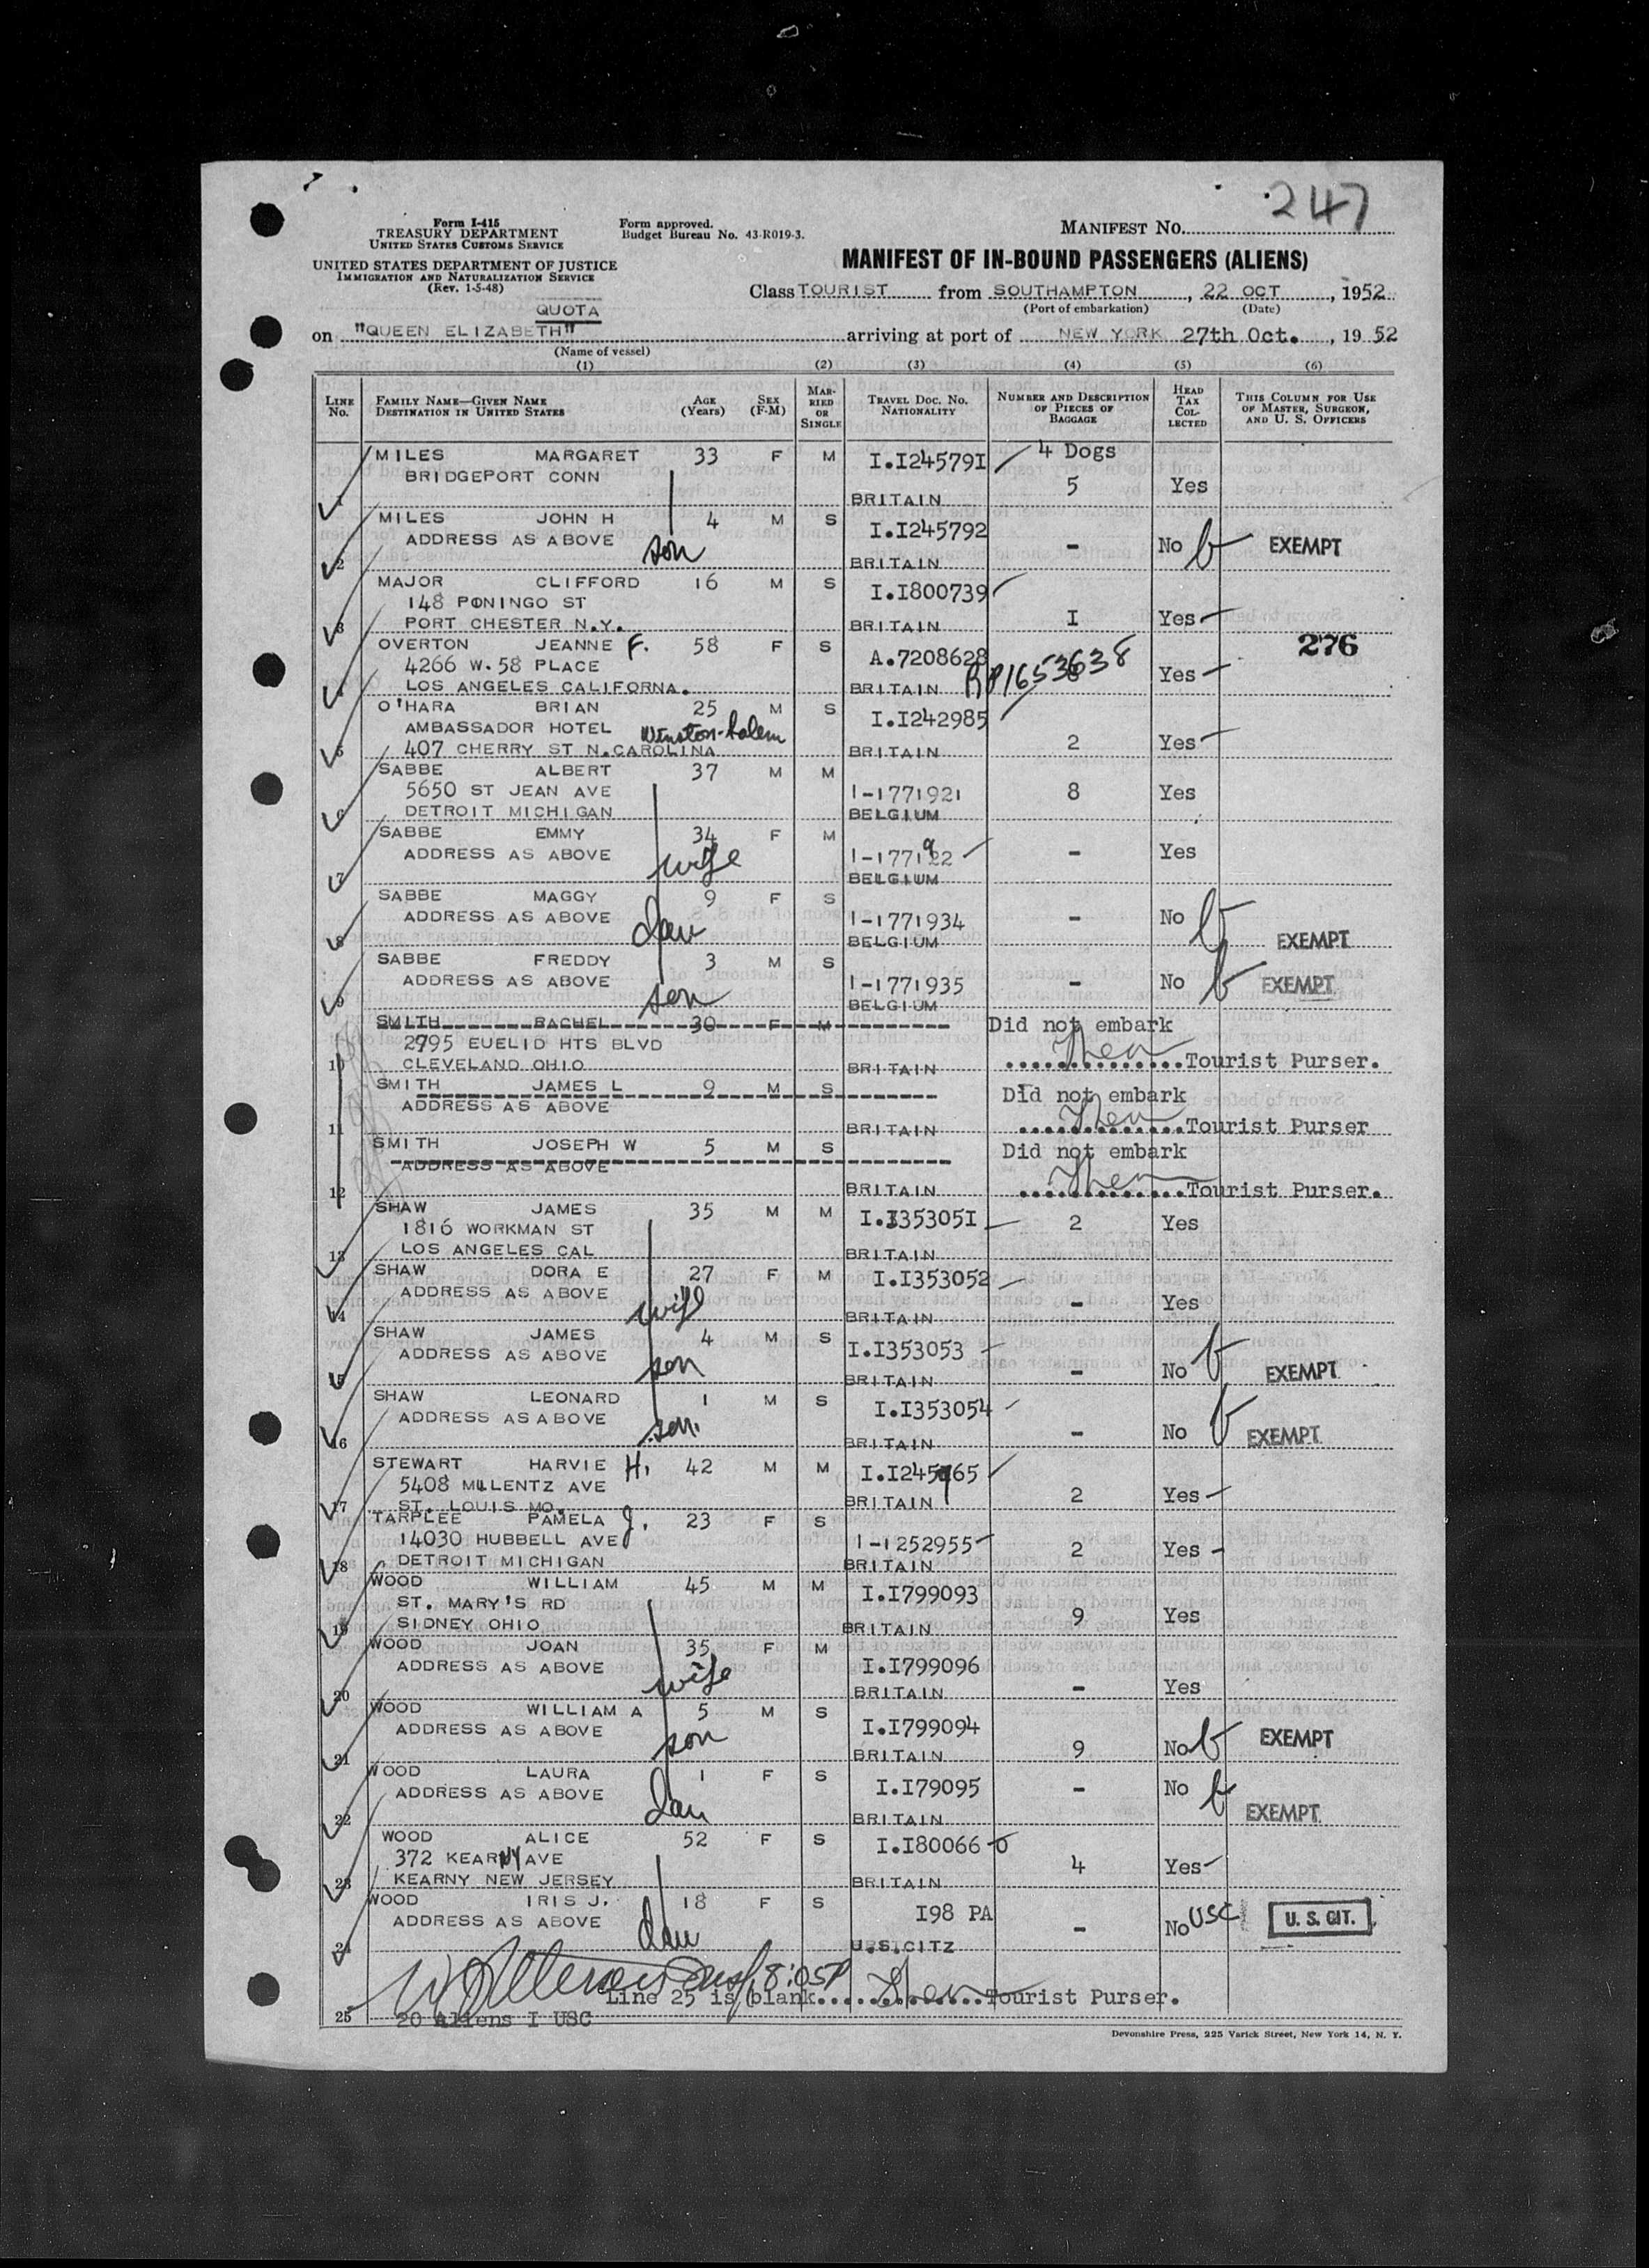 247
Form I-415
TREASURY DEPARTMENT
UNITED STATES CUSTOMS SERVICE
Form approved.
Budget Bureau No. 43-R019-3.
MANIFEST No.
UNITED STATES DEPARTMENT OF JUSTICE
IMMIGRATION AND NATURALIZATION SERVICE
(Rev. 1-5-48)
MANIFEST OF IN-BOUND PASSENGERS (ALIENS)
Class TOURIST from SOUTHAMPTON, 22 OCT, 1952
(Port of embarkation) (Date)
QUOTA
on "QUEEN ELIZABETH" arriving at port of NEW YORK 27th Oct., 19 52
(Name of vessel)
(1) (2) (3) (4) (5) (6)
LINE No. FAMILY NAME—GIVEN NAME DESTINATION IN UNITED STATES AGE (Years) SEX (F-M) MARRIED OR SINGLE TRAVEL DOC. No. NATIONALITY NUMBER AND DESCRIPTION OF PIECES OF BAGGAGE HEAD TAX COLLECTED THIS COLUMN FOR USE OF MASTER, SURGEON, AND U. S. OFFICERS
MILES MARGARET 33 F M I.I245791 4 Dogs
BRIDGEPORT CONN 5 Yes
1 BRITAIN
MILES JOHN H 4 M S I.I245792
ADDRESS AS ABOVE son - No b EXEMPT
2 BRITAIN
MAJOR CLIFFORD 16 M S I.I800739
148 PONINGO ST
3 PORT CHESTER N.Y. BRITAIN I Yes
OVERTON JEANNE F. 58 F S A.7208628 276
4266 W. 58 PLACE RP1653638 Yes
4 LOS ANGELES CALIFORNA. BRITAIN
O'HARA BRIAN 25 M S I.I242985
AMBASSADOR HOTEL Winston-Salem
5 407 CHERRY ST N.CAROLINA BRITAIN 2 Yes
SABBE ALBERT 37 M M
5650 ST JEAN AVE I-I771921 8 Yes
6 DETROIT MICHIGAN BELGIUM
SABBE EMMY 34 F M
ADDRESS AS ABOVE wife I-I771922 - Yes
7 BELGIUM
SABBE MAGGY 9 F S
ADDRESS AS ABOVE dau I-I771934 - No b
8 BELGIUM EXEMPT
SABBE FREDDY 3 M S
ADDRESS AS ABOVE son I-I771935 - No b EXEMPT
9 BELGIUM
SMITH RACHEL 30 F M Did not embark
2795 EUELID HTS BLVD
10 CLEVELAND OHIO BRITAIN Tourist Purser.
SMITH JAMES L 9 M S Did not embark
ADDRESS AS ABOVE
11 BRITAIN Tourist Purser
SMITH JOSEPH W 5 M S Did not embark
ADDRESS AS ABOVE
12 BRITAIN Tourist Purser.
SHAW JAMES 35 M M I.I353051 2 Yes
1816 WORKMAN ST
13 LOS ANGELES CAL BRITAIN
SHAW DORA E 27 F M I.I353052
ADDRESS AS ABOVE wife - Yes
14 BRITAIN
SHAW JAMES 4 M S I.I353053
ADDRESS AS ABOVE son - No b EXEMPT
15 BRITAIN
SHAW LEONARD 1 M S I.I353054
ADDRESS AS ABOVE son. - No b EXEMPT
16 BRITAIN
STEWART HARVIE H. 42 M M I.I245965
5408 MILLENTZ AVE 2 Yes
17 ST. LOUIS MO. BRITAIN
TARPLEE PAMELA J. 23 F S
14030 HUBBELL AVE I-I252955 2 Yes
18 DETROIT MICHIGAN BRITAIN
WOOD WILLIAM 45 M M I.I799093
ST. MARY'S RD 9 Yes
19 SIDNEY OHIO BRITAIN
WOOD JOAN 35 F M I.I799096
ADDRESS AS ABOVE wife - Yes
20 BRITAIN
WOOD WILLIAM A 5 M S I.I799094
ADDRESS AS ABOVE son 9 No b EXEMPT
21 BRITAIN
WOOD LAURA 1 F S I.I79095 - No b
ADDRESS AS ABOVE dau EXEMPT
22 BRITAIN
WOOD ALICE 52 F S I.I80066 0
372 KEARNY AVE 4 Yes
23 KEARNY NEW JERSEY BRITAIN
WOOD IRIS J. 18 F S I98 PA
ADDRESS AS ABOVE dau - No USC U. S. CIT.
24 U.S.CITZ
8:05P
Line 25 is blank. Tourist Purser.
25 20 Aliens I USC
Devonshire Press, 225 Varick Street, New York 14, N. Y.